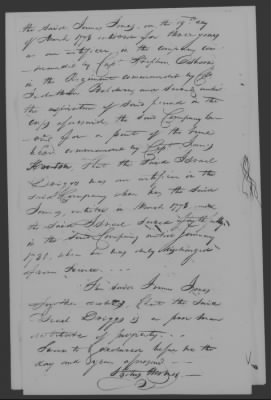 the said James Jones, on the 19th day
of March 1778 inlisted for three years
as an artificer, in the company com
manded by Capt
in the Regiment commanded by Col
Jeduthan Baldwin, and served until
the expiration of said period in the
corps aforesaid, the said Company
for a part of the time
been commanded by Capt James
Horton, that the said Israel
Driggs was an artificer in the
said Company when he, the said
Jones, enlisted in March 1778, and
the said Israel served
in the said Company until January
1781, when he was duly discharged
from service. . . .
The said James Jones
further that the said
Israel Driggs is a poor man
destitute of property. . .
Sworn to & declared before me the
day and year aforesaid